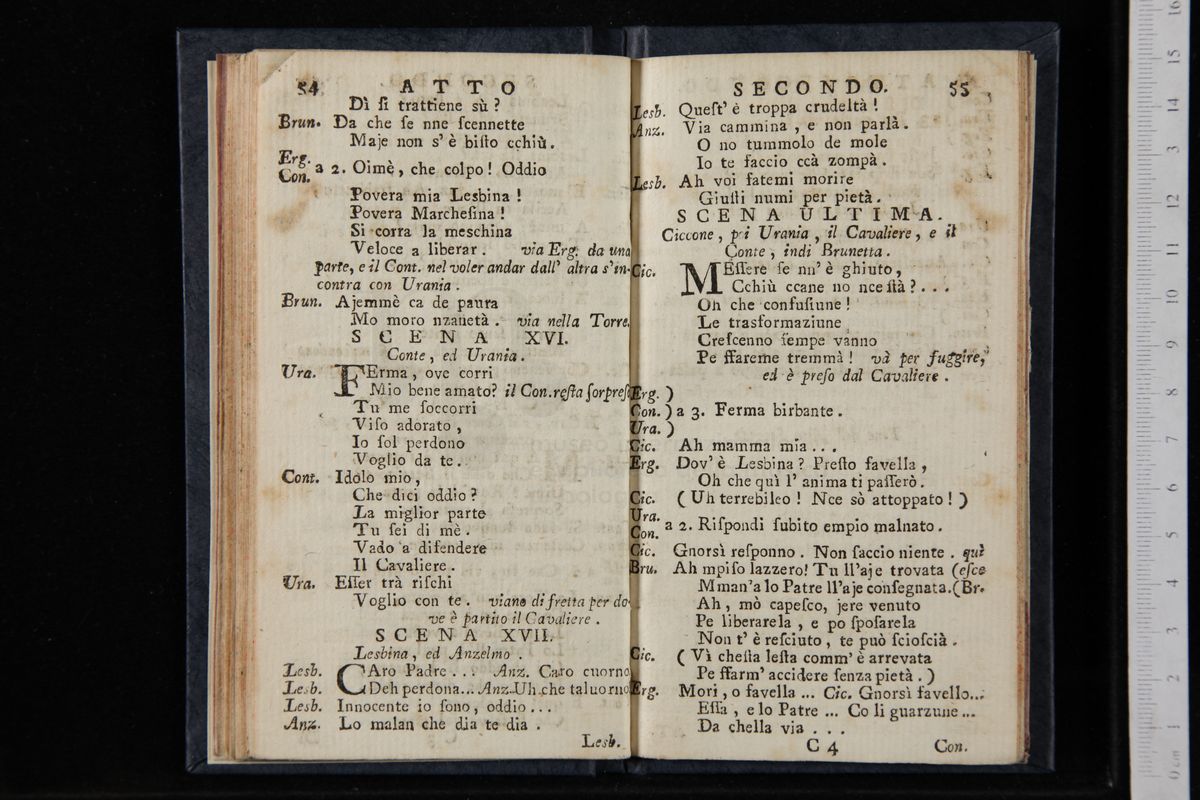 54 ATTO
Dì ſi trattiene sù ?
Brun. Da che ſe nne ſcennette
Maje non s' è biſto cchiù.
Erg.
Con. a 2. Oimè, che colpo! Oddio
Povera mia Lesbina !
Povera Marcheſina !
Si corra la meschina
Veloce a liberar . via Erg. da una
parte, e il Cont. nel voler andar dall' altra s'in-
contra con Urania .
Brun. Ajemmè ca de paura
Mo moro nzanetà . via nella Torre.
SCENA XVI.
Conte , ed Urania .
Ura. FErma , ove corri
Mio bene amato? il Con. reſta ſorpreſo
Tu me ſoccorri
Viſo adorato ,
Io ſol perdono
Voglio da te .
Cont. Idolo mio ,
Che dici oddio ?
La miglior parte
Tu ſei di mè .
Vado a difendere
Il Cavaliere .
Ura. Eſſer trà riſchi
Voglio con te . viano di fretta per do-
ve è partito il Cavaliere .
SCENA XVII.
Lesbina , ed Anzelmo .
Lesb. CAro Padre . . . Anz. Caro cuorno
Lesb. Deh perdona... Anz. Uh che taluorno
Lesb. Innocente io ſono, oddio . . .
Anz. Lo malan che dia te dia .
Lesb.
SECONDO. 55
Lesb. Queſt' è troppa crudeltà !
Anz. Via cammina , e non parlà .
O no tummolo de mole
Io te faccio ccà zompà .
Lesb. Ah voi fatemi morire
Giuſti numi per pietà .
SCENA ULTIMA.
Ciccone , poi Urania , il Cavaliere , e il
Conte , indi Brunetta .
Cic. MEſſere ſe nn' è ghiuto ,
Cchiù ccane no nce ſtà ? . . .
Oh che confuſiune !
Le trasformaziune
Creſcenno ſempe vanno
Pe ffareme tremmà ! và per fuggire,
ed è preſo dal Cavaliere .
Erg. )
Con. ) a 3. Ferma birbante .
Ura. )
Cic. Ah mamma mia . . .
Erg. Dov' è Lesbina ? Preſto favella ,
Oh che quì l' anima ti paſſerò .
Cic. ( Uh terrebileo ! Nce sò attoppato ! )
Ura.
Con. a 2. Riſpondi ſubito empio malnato .
Cic. Gnorsì reſponno . Non faccio niente . quì
Bru. Ah mpiſo lazzero! Tu ll'aje trovata (eſce
Mman'a lo Patre ll'aje conſegnata. (Br.
Ah , mò capeſco, jere venuto
Pe liberarela , e po ſpoſarela
Non t' è reſciuto , te può ſcioſcià .
Cic. ( Vì cheſta leſta comm' è arrevata
Pe ffarm' accidere ſenza pietà . )
Erg. Mori , o favella ... Cic. Gnorsì favello...
Eſſa , e lo Patre ... Co li guarzune ...
Da chella via . . .
C 4 Con.